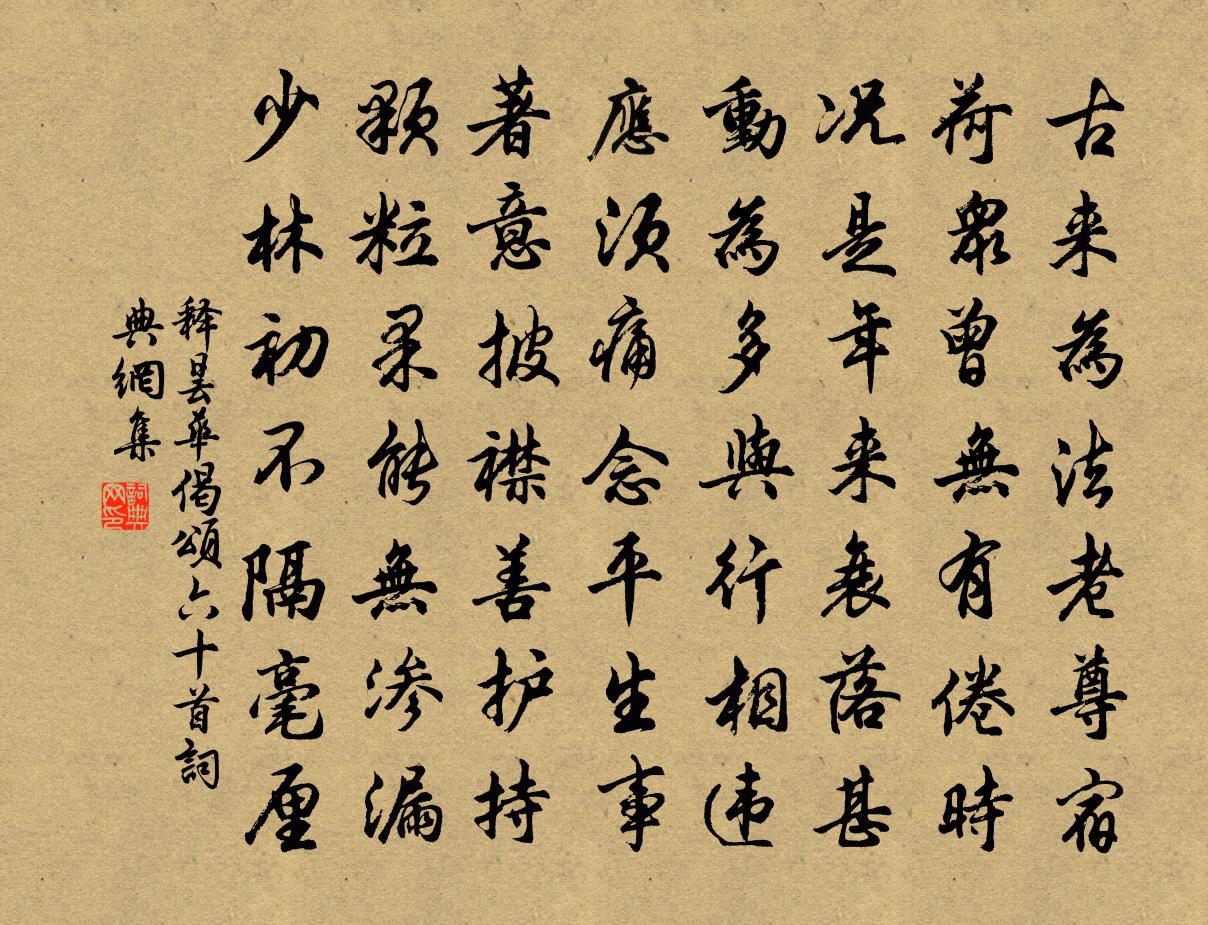 古来為法老尊宿
荷衆曾無有倦時
况是年来衰落甚
動為多與行相违
應须痛念平生事
著意披襟善护持
颗粒果能無渗漏
少林初不隔毫厘
释曇華偈頌六十首詞
典網集
詞典
网印